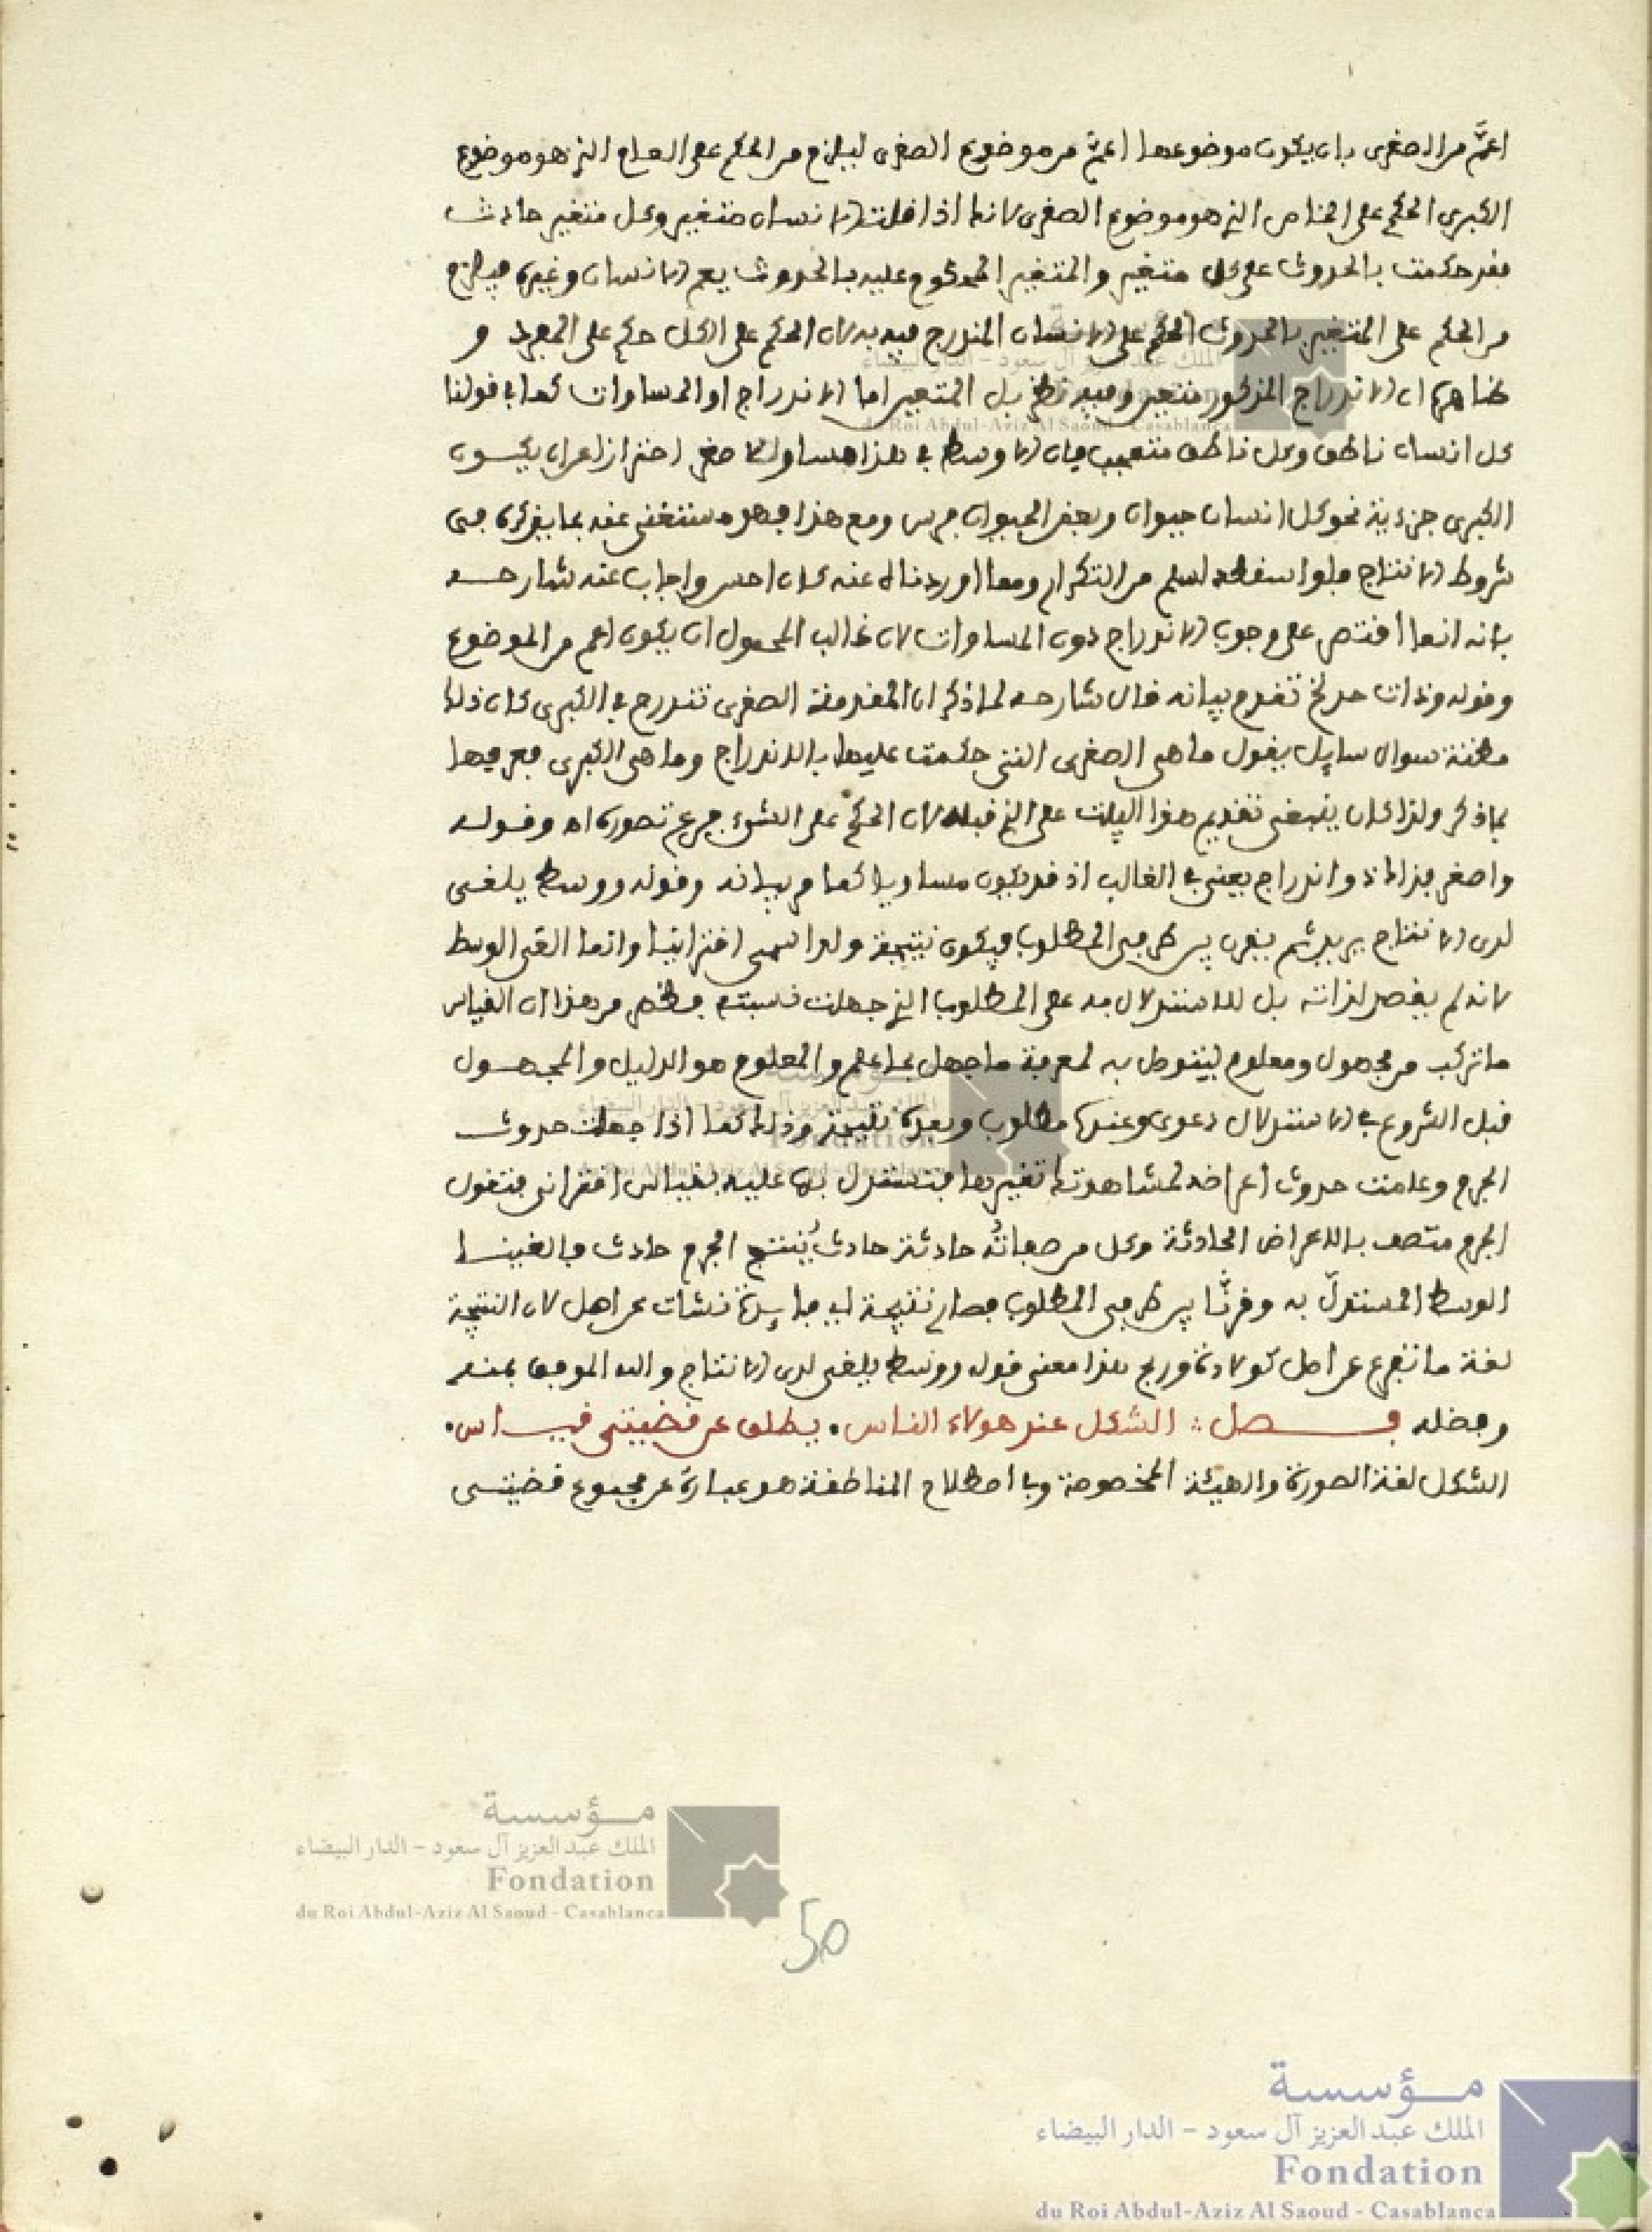 اعمَّ من الصغرى بان يكون موضوعها اعمّ من موضوع الصغرى ليلزم من الحكم على العام الذي هو موضوع
الكبرى الحكم على الخاص الذي هو موضوع الصغرى لانك اذا قلت الانسان متغير وكل متغير حادث
فقد حكمت بالحدوث على كل متغير والمتغير المحكوم عليه بالحدوث يعم الانسان وغيره فيلزم
من الحكم على المتغير بالحدوث الحكم على الانسان المندرج فيه لان الحكم على الكل حكم على المفرد و
ظاهره ان الاندراج المذكور متعين وفيه نظر بل المتعين اما الاندراج او المساوات كما في قولنا
كل انسان ناطق وكل ناطق متعجب فان الاوسط في هذا مساو للاصغر احترازا من ان يكون
الكبرى جزءية نحو كل انسان حيوان وبعض الحيوان فرس ومع هذا فهو مستغنى عنه بما يذكره في
شروط الانتاج فلو اسقطه لسلم من التكرار ومما اوردناه عنه كان احسن واجاب عنه شارحه
بانه انما اقتصر على وجوب الاندراج دون المساوات لان غالب المحمول ان يكون اعم من الموضوع
وقوله وذات حد الخ تقدم بيانه قال شارحه لما ذكر ان المقدمة الصغرى تندرج في الكبرى كان ذلك
مظنة سوال سايل يقول ما هي الصغرى التي حكمت عليها بالاندراج وما هي الكبرى فعرفها
بما ذكر ولذا كان ينبغي تقديم هذا البيت على الذي قبله لان الحكم على الشيء فرع تصوره اه وقوله
واصغر فذاك ذو اندراج يعني في الغالب اذ قد يكون مساويا كما مر بيانه وقوله ووسط يلغى
لدى الانتاج يريد ثم يقرن بين طرفي المطلوب فيكون نتيجة ولذا سمي اقترانيا وانما القي الوسط
لانه لم يقصد لذاته بل للاستدلال به على المطلوب الذي جهلت نسبته فظهر من هذا ان القياس
ما تركب من مجهول ومعلوم ليتوصل به لمعرفة ما جهل بما علم والمعلوم هو الدليل والمجهول
قبل الشروع في الاستدلال دعوى وعنده مطلوب وبعده نتيجة وذلك كما اذا جهلت حدوث
الجرم وعلمت حدوث اعراضه لمشاهدتك تغيرها فتستدل بها عليه بقياس اقتراني فتقول
الجرم متصف بالاعراض الحادثة وكل من صفاتُه حادثة حادث يُنتج الجرم حادث فالغينا
الوسط المستدلّ به وقرنّا بين طرفي المطلوب فصار نتيجة اي فايدة نشات عن اصل لان النتيجة
لغة ما تفرع عن اصل كولادة وربح هذا معنى قوله ووسط يلغى لدى الانتاج والله الموفق بمنه
وفضله فـصل : الشكل عند هولاء الناس . يطلق عن قضيتي قياس .
الشكل لغة الصورة والهيئة المخصوصة وفي اصطلاح المناطقة هو عبارة عن مجموع قضيتي
مؤسسة
الملك عبد العزيز آل سعود - الدار البيضاء
Fondation
du Roi Abdul-Aziz Al Saoud - Casablanca
50
مؤسسة
الملك عبد العزيز آل سعود - الدار البيضاء
Fondation
du Roi Abdul-Aziz Al Saoud - Casablanca